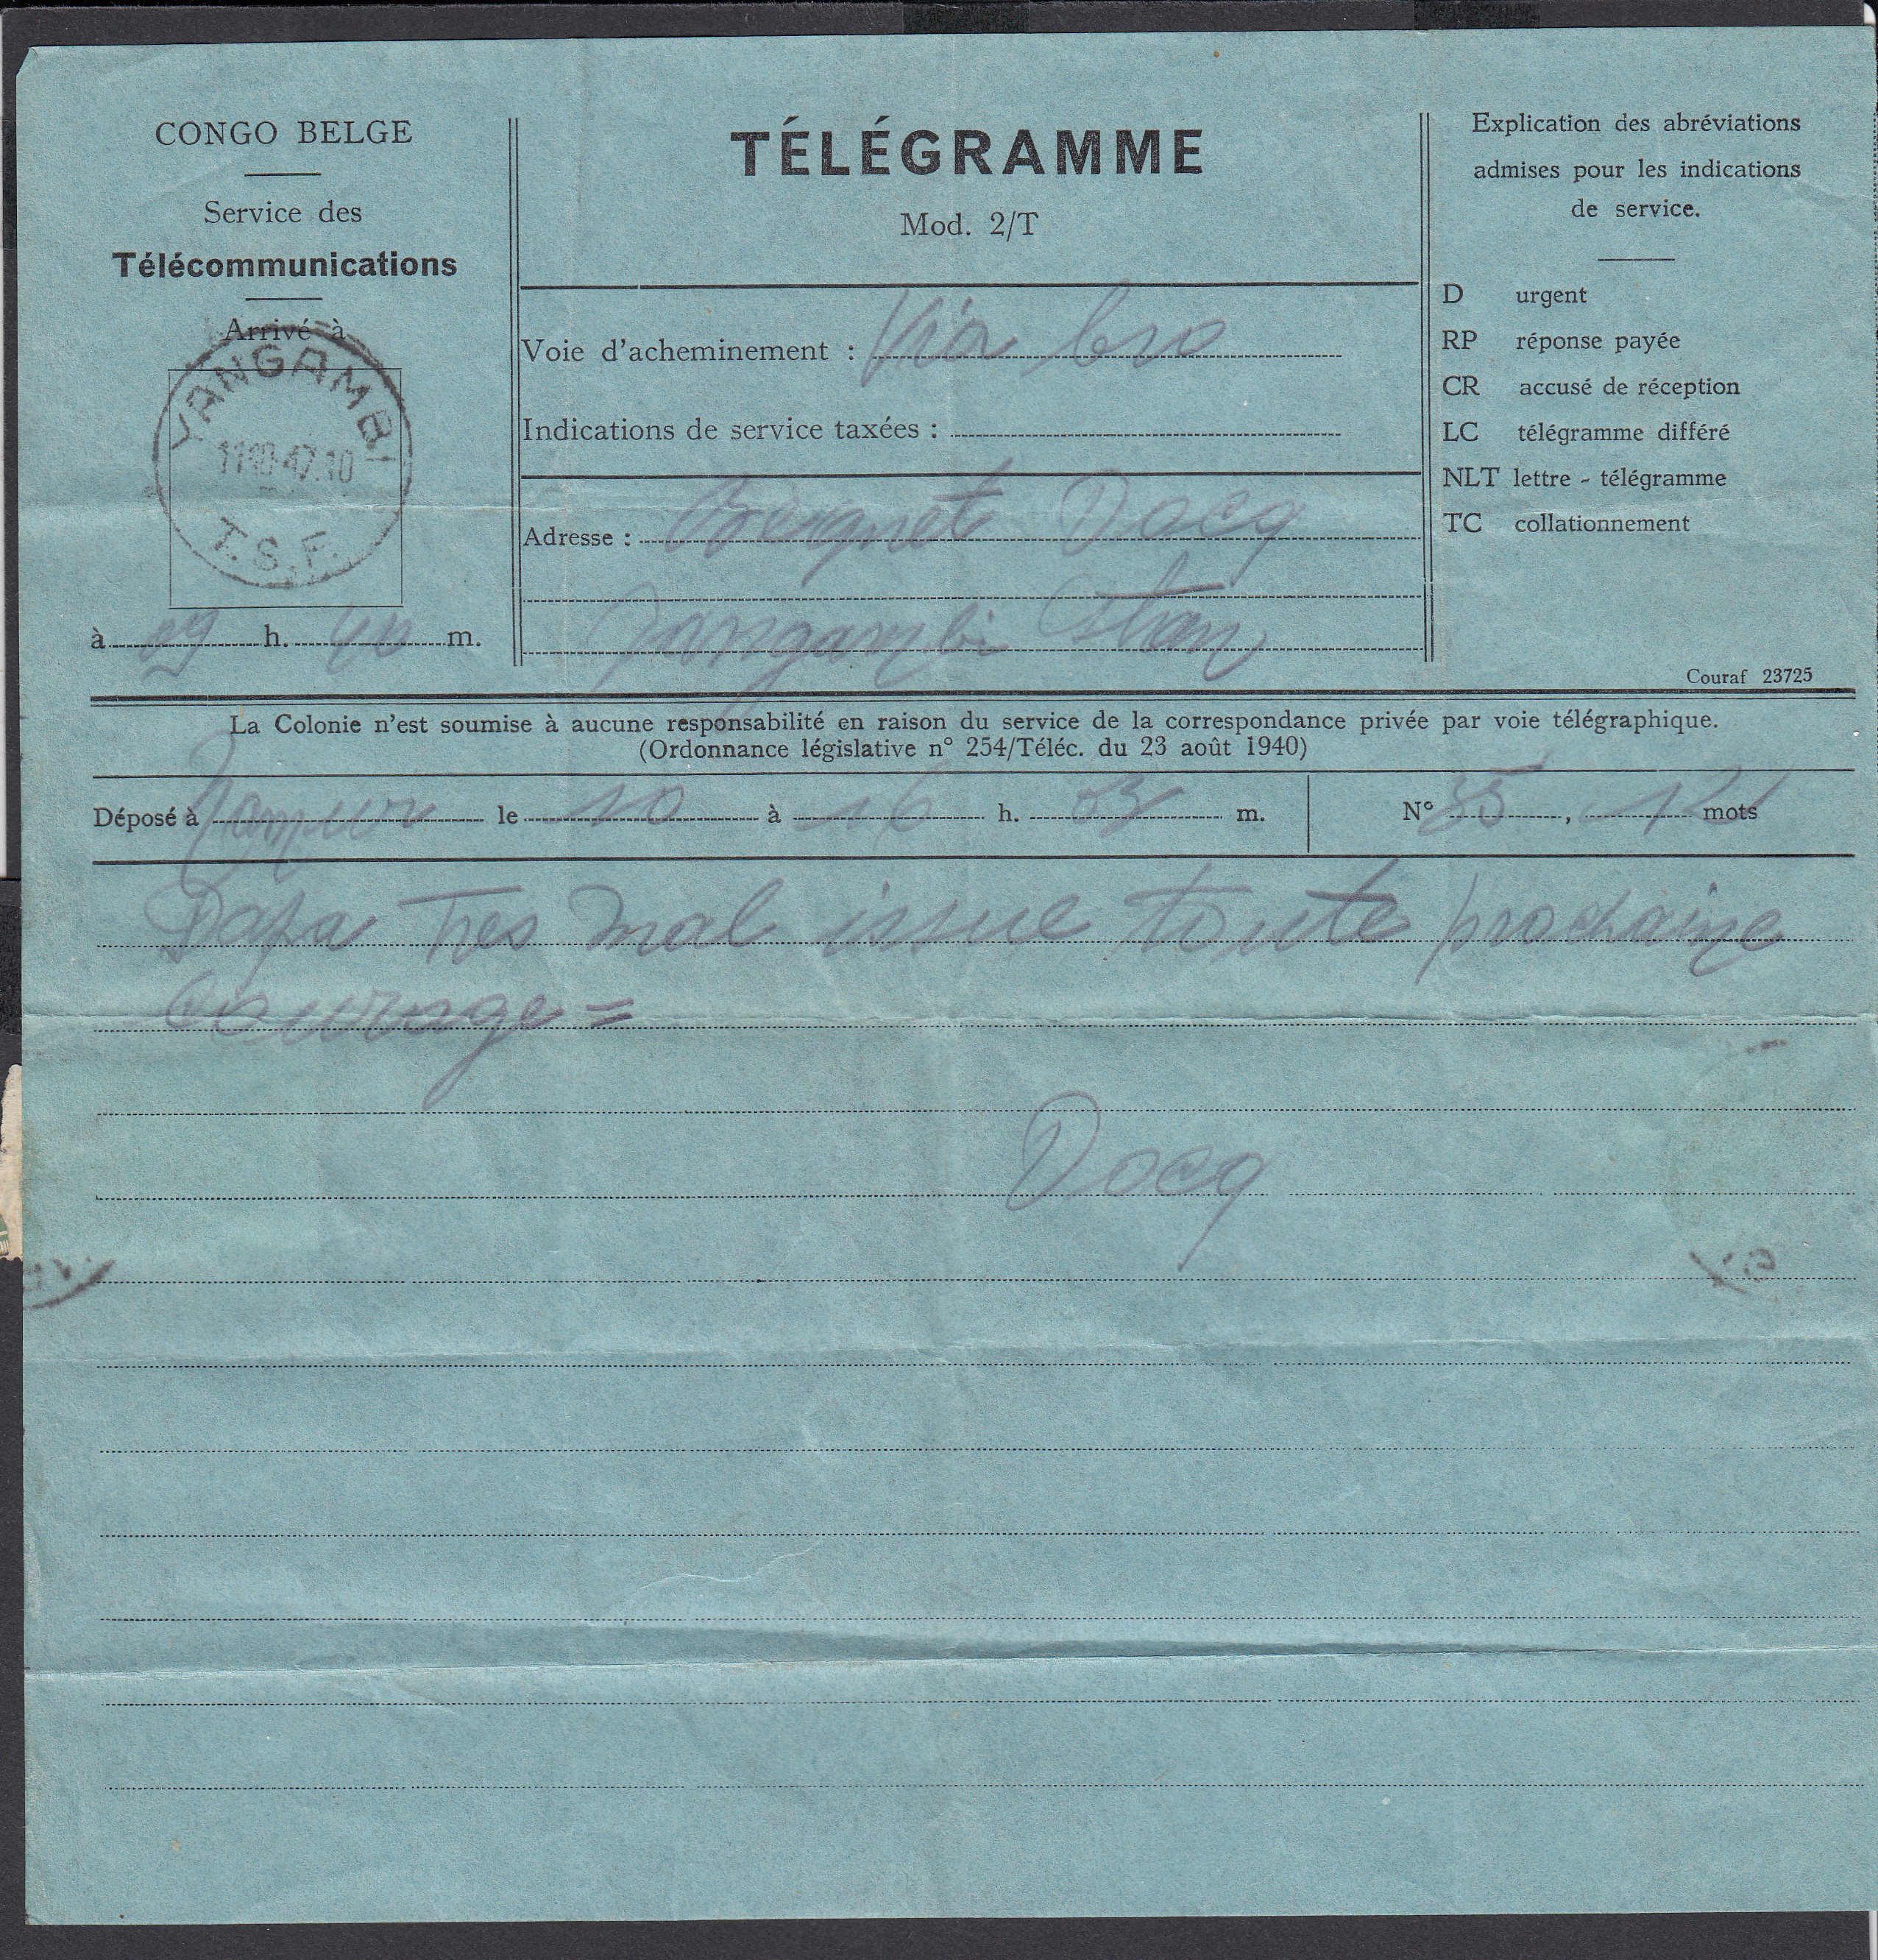 CONGO BELGE
Service des
Télécommunications
Arrivé à
YANGAMBI
11-10-47.10
T.S.F.
à 09 h. 40 m.
TÉLÉGRAMME
Mod. 2/T
Voie d'acheminement : Via
Indications de service taxées :
Adresse : Docq
Yangambi Stan
Explication des abréviations
admises pour les indications
de service.
D urgent
RP réponse payée
CR accusé de réception
LC télégramme différé
NLT lettre - télégramme
TC collationnement
Couraf 23725
La Colonie n'est soumise à aucune responsabilité en raison du service de la correspondance privée par voie télégraphique.
(Ordonnance législative n° 254/Téléc. du 23 août 1940)
Déposé à Namur le 10 à 16 h. 53 m. N° 35, 12 mots
Papa Tres mal issue toute prochaine
Courage =
Docq